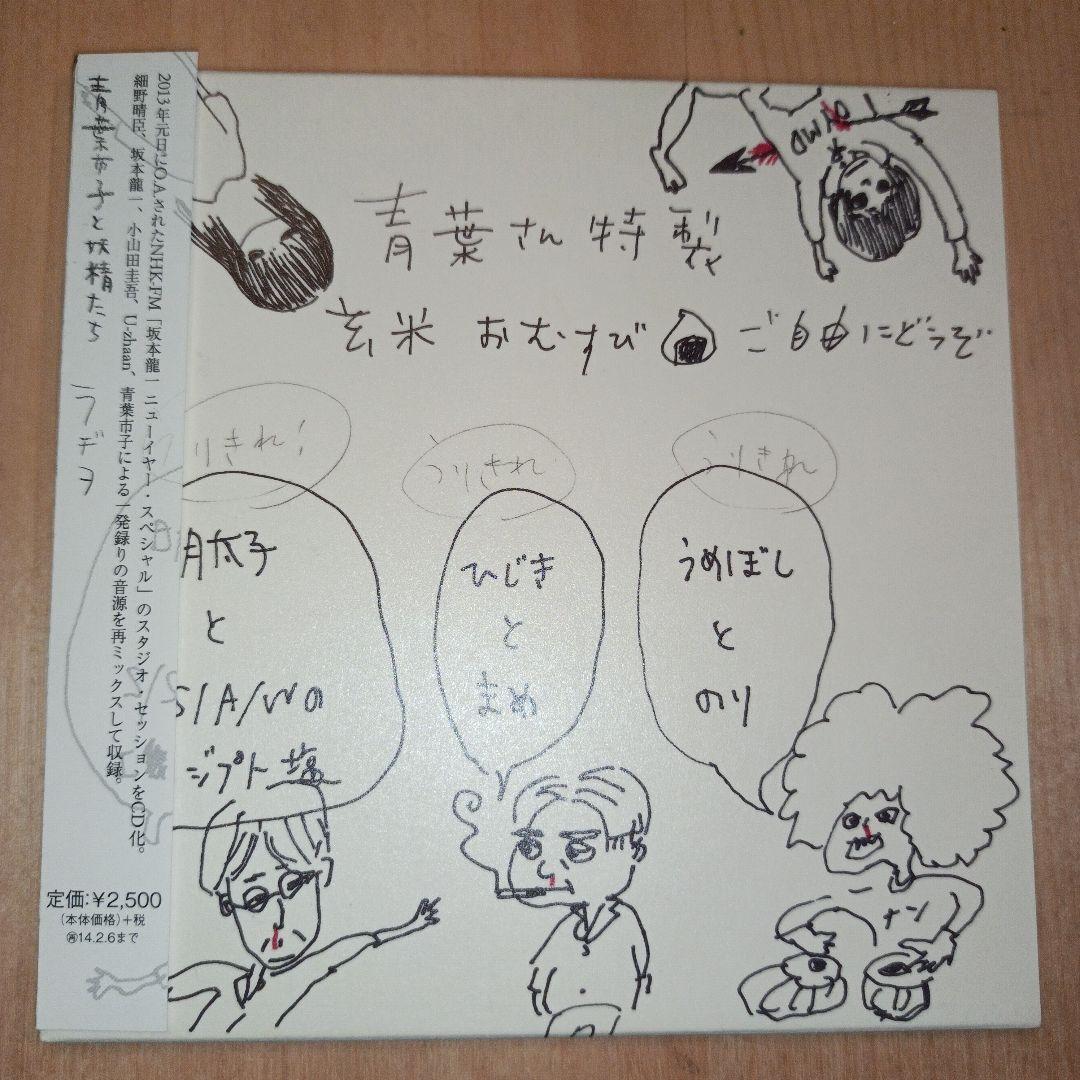 2013年元日にO.A.されたNHK-FM「坂本龍一 ニューイヤー・スペシャル」のスタジオ・セッションをCD化。
細野晴臣、坂本龍一、小山田圭吾、U-zhaan、青葉市子による一発録りの音源を再ミックスして収録。
青葉市子と妖精たち ラヂヲ
定価:¥2,500
(本体価格)+税
14.2.6まで
青葉さん特製
玄米おむすび ご自由にどうぞ
りきれ!
うりきれ
うりきれ
月太子
と
S/A/Wの
ジプト塩
ひじき
と
まめ
うめぼし
と
のり
ナン